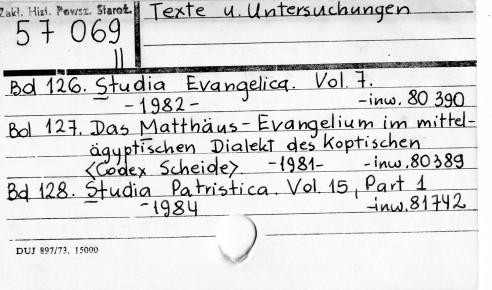 Zakł. Hist. Powsz. Staroż.
Texte u. Untersuchungen
57 069
II
Bd 126. Studia Evangelica. Vol. 7.
-1982- -inw. 80 390
Bd 127. Das Matthäus-Evangelium im mittel-
ägyptischen Dialekt des Koptischen
<Codex Scheide>. -1981- -inw. 80389
Bd 128. Studia Patristica. Vol. 15, Part 1
-1984 -inw. 81742
DUJ 897/73. 15000